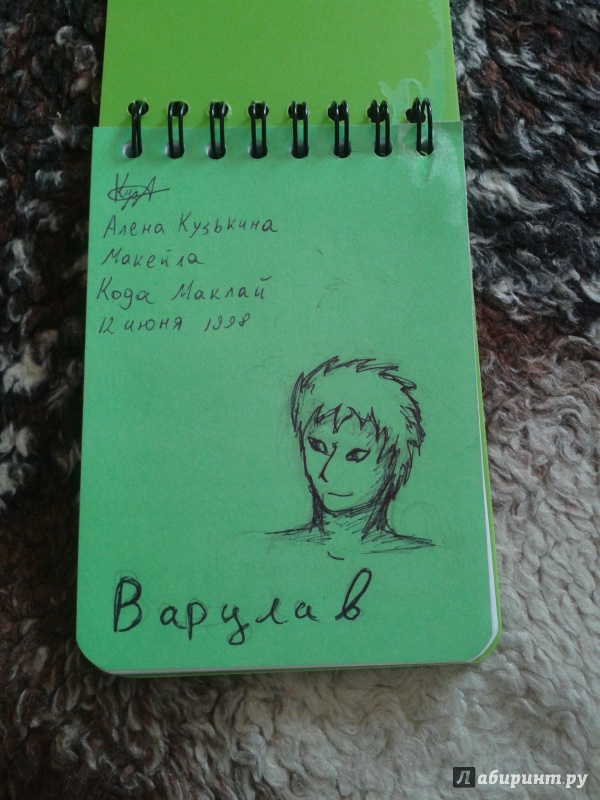 Алена Кузькина
Макейла
Кода Маклай
12 июня 1998
Варулав
Лабиринт.ру